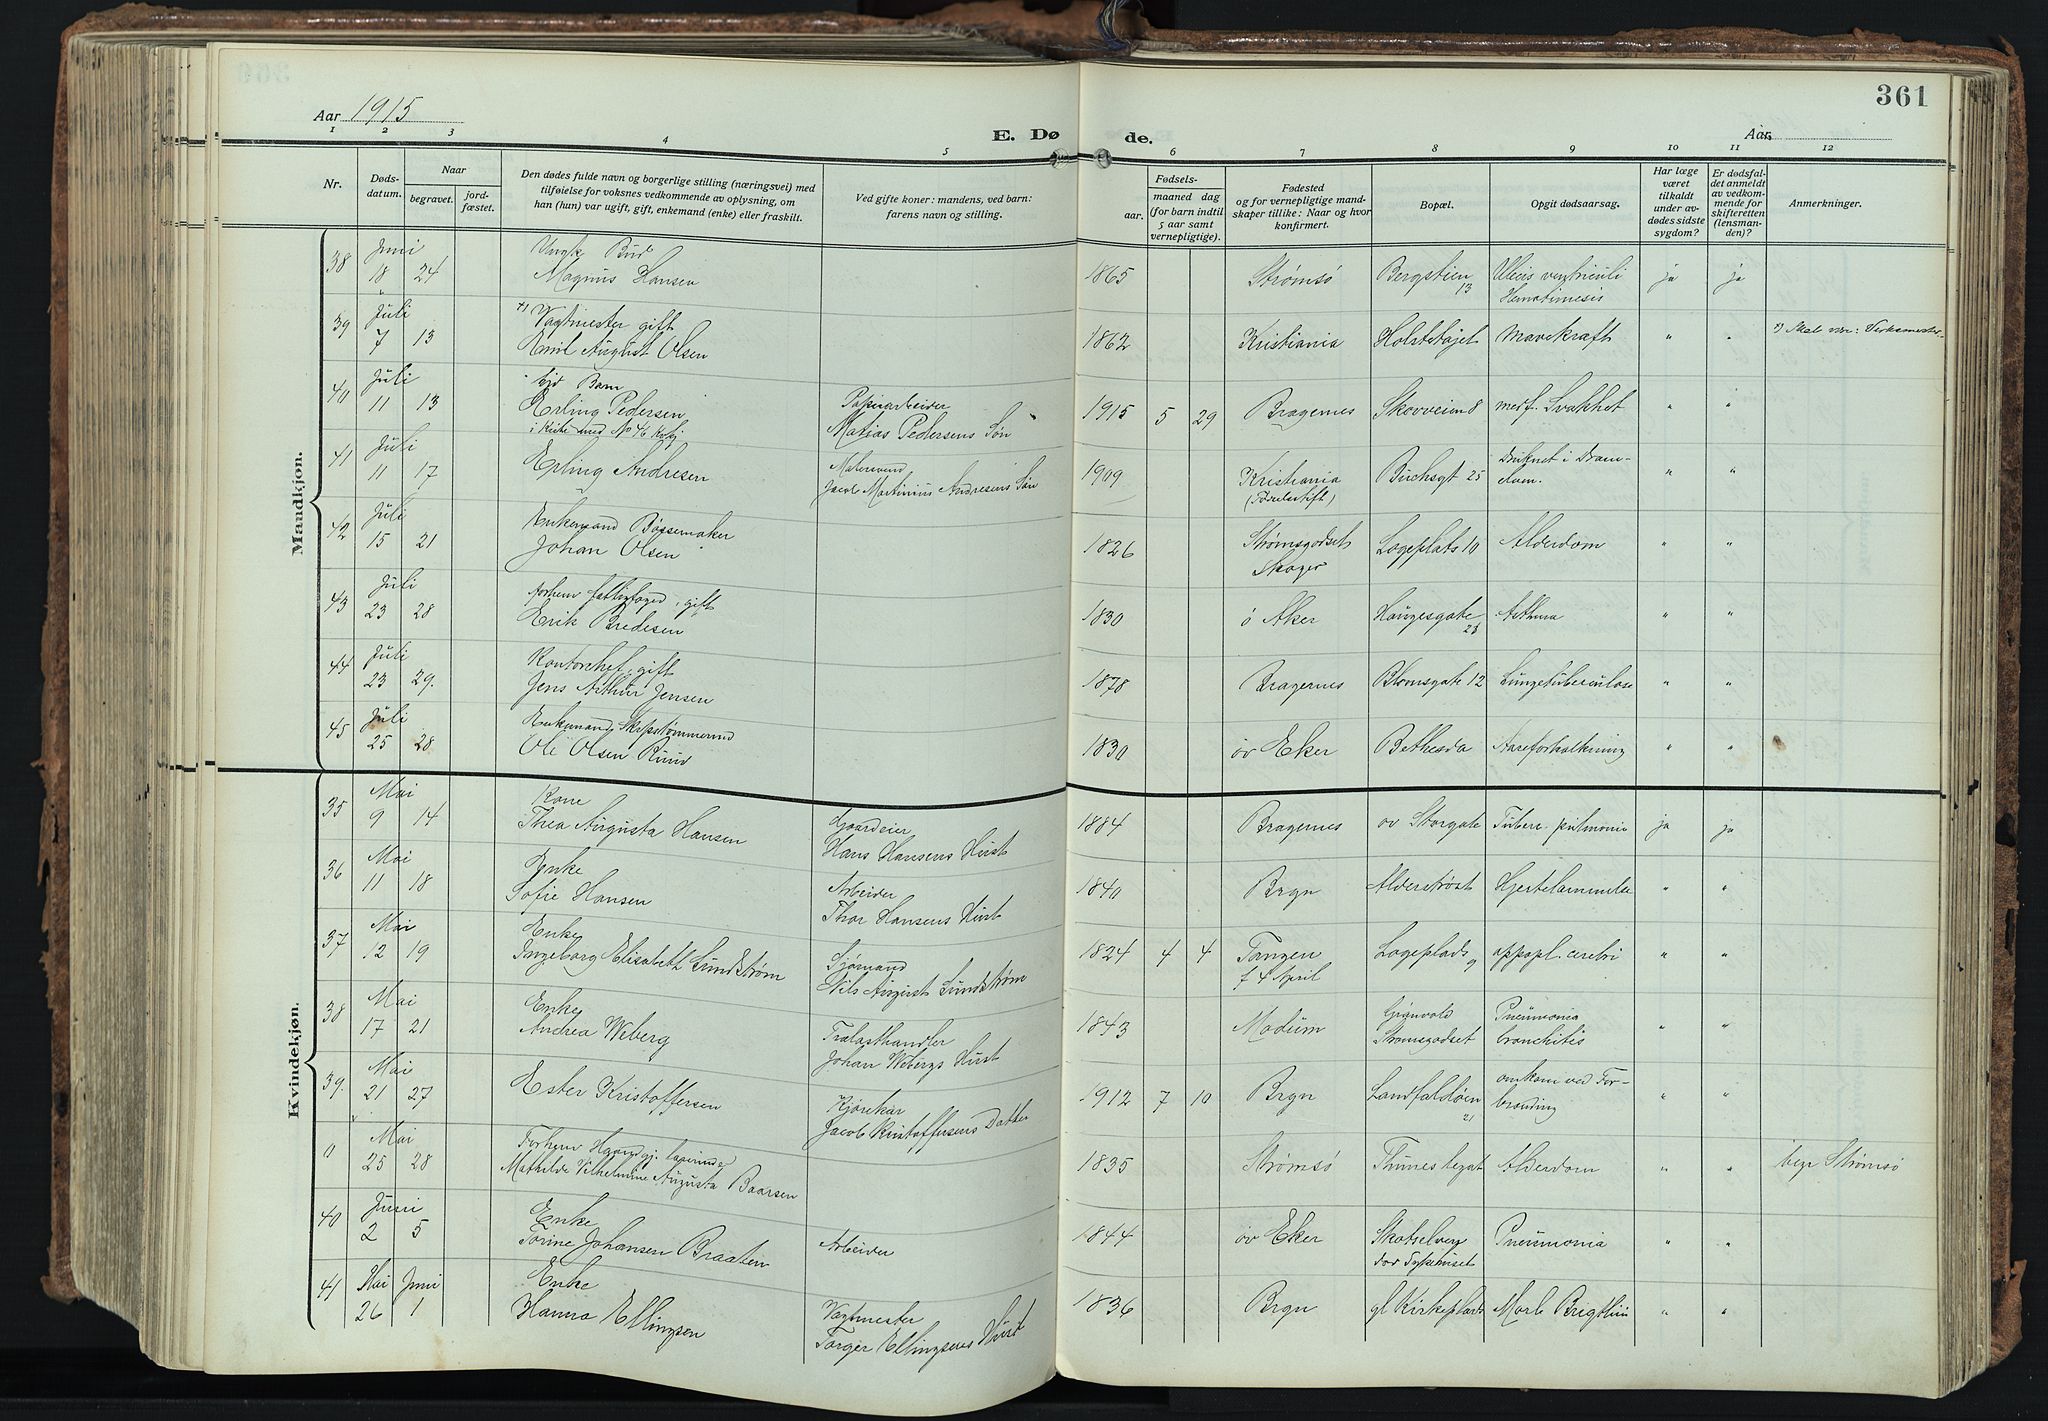 361
Aar 1915
E. Dø
de.
Aar
1 2 3 4 5 6 7 8 9 10 11 12
Nr.
Døds-
datum.
Naar
begravet.
jord-
fæstet.
Den dødes fulde navn og borgerlige stilling (næringsvei) med
tilføielse for voksnes vedkommende av oplysning, om
han (hun) var ugift, gift, enkemand (enke) eller fraskilt.
Ved gifte koner: mandens, ved barn:
farens navn og stilling.
Fødsels-
aar. maaned dag
(for barn indtil
5 aar samt
vernepligtige).
Fødested
og for vernepligtige mand-
skaper tillike: Naar og hvor
konfirmert.
Bopæl.
Opgit dødsaarsag.
Har læge
været
tilkaldt
under av-
dødes sidste
sygdom?
Er dødsfal-
det anmeldt
av vedkom-
mende for
skifteretten
(lensman-
den)?
Anmerkninger.
Mandkjøn.
38 Juni Bud
18 24 Magnus Hansen 1865 Strømsø Bergstien 13 Ulcus ventriculi ja ja
39 Juli Vagtmester gift
7 13 Emil August Olsen 1862 Kristiania mavekræft " "
40 Juli Barn
11 13 Erling Pedersen Mathias Pedersens Søn 1915 5 29 Bragernes Skovveien 8 medf. Svakhet " "
41 Juli
11 17 Erling Andresen Jacob Martinius Andresens Søn 1909 Kristiania Buchsgt 25 Druknet i Dram-
" "
42 Juli Enkemand Bøssemaker
15 21 Johan Olsen 1826 Strømsgodset Løgeplats 10 Alderdom " "
Skoger
43 Juli gift
23 28 Erik Bredesen 1830 ø Aker Haugesgate Asthma " "
44 Juli gift
23 29. Jens Arthur Jensen 1878 Bragernes Blomsgate 12 Lungetuberculose " "
45 Juli Enkemand Skipstømmermd
25 28 Ole Olsen Ruud 1830 øv Eker Bethesda Aareforkalkning " "
Kvindekjøn.
35 Mai Kone Gaardeier
9 14 Thea Augusta Hansen Hans Hansens Hust 1884 Bragernes øv Storgate ja ja
36 Mai Enke Arbeider
11 18 Sofie Hansen Thor Hansens Hust 1840 Brgn Alderstrøst Hjertelammelse " "
37 Mai Enke Sjømand
12 19 Ingeborg Elisabeth Lundstrøm Nils August Lundstrøm 1824 4 4 Tangen Løgeplads 9 appopl. cerebri " "
f 4 April
38 Mai Enke Trælasthandler
17 21 Andrea Weberg Johan Webergs Hust 1843 Modum Strømsgodset Pneumonia " "
bronchitis
39. Mai Kjørekar
21 27 Ester Kristoffersen Jacob Kristoffersens Datter 1912 7 10 Brgn Landfaldøen 21 omkom ved For- " "
brænding
0 Mai Forhenv
25 28 Mathilde Vilhelmine Augusta Baarsen 1835 Strømsø Thunes legat Alderdom " " begr Strømsø
40 Juni Enke
2 5 Torine Johansen Braaten Arbeider 1844 øv Eker Skotselven Pneumonia " "
41 Mai Juni Enke Vagtmester
26 1 Hanna Ellingsen Torger Ellingsens Hust 1836 Brgn gl Kirkeplads Morb Brigthii " "